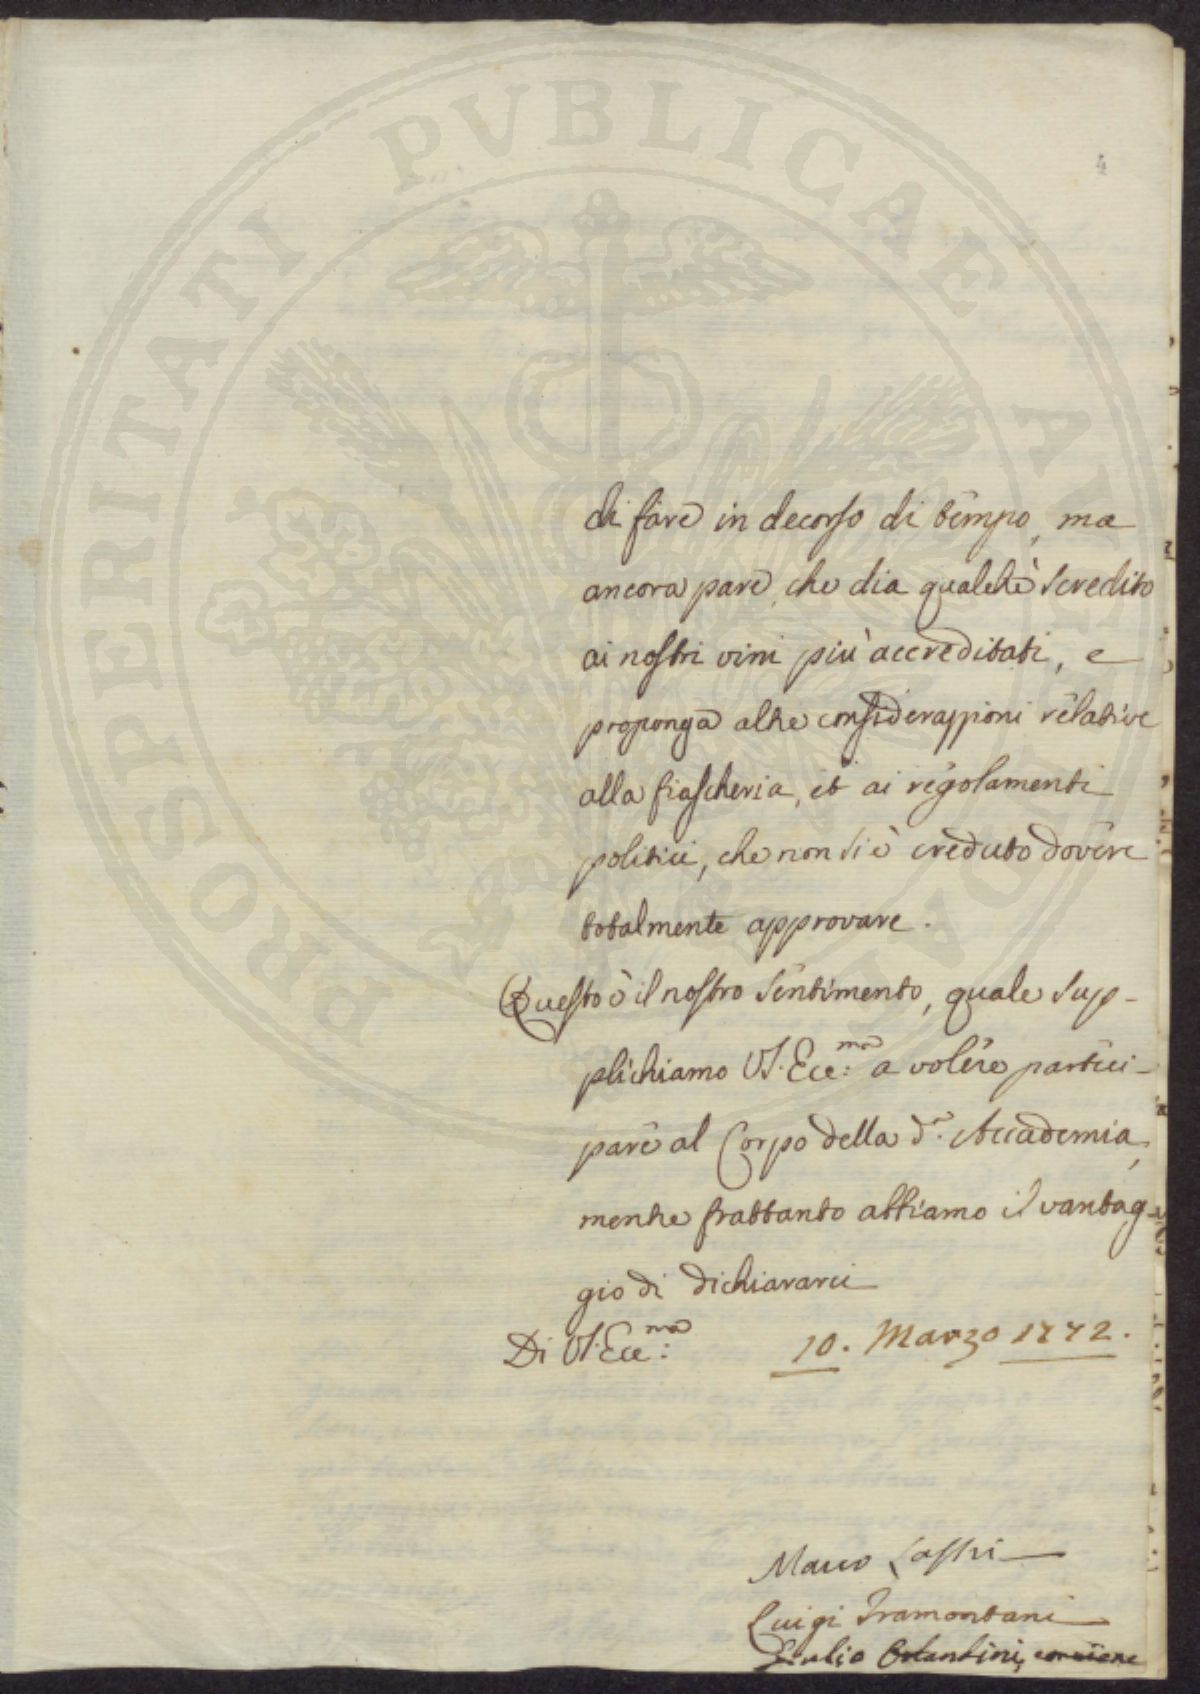 PROSPERITATI PUBLICAE AUGENDAE
4
di fare in decorso di tempo, ma
ancora pare, che dia qualche scredito
ai nostri vini più accreditati, e
proponga altre considerazioni relative
alla fiascheria, et ai regolamenti
politici, che non si è creduto dovere
totalmente approvare.
Questo è il nostro sentimento, quale sup-
plichiamo VS. Ecc:ma a volere parteci-
pare al Corpo della d.a Accademia,
mentre frattanto abbiamo il vantag-
gio di dichiararci
Di VS. Ecc:ma 10. Marzo 1772.
Marco Lastri
Luigi Tramontani
Giulio Orlandini,